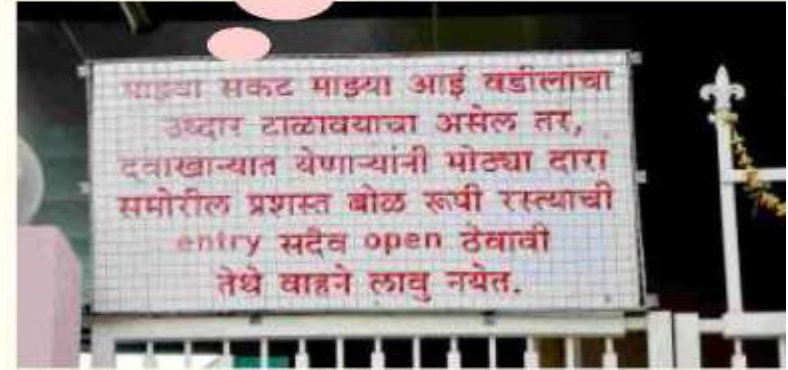 माझ्या सकट माझ्या आई वडीलांचा
उध्दार टाळावयाचा असेल तर,
दवाखान्यात येणाऱ्यांनी मोठ्या दारा
समोरील प्रशस्त बोळ रूपी रस्त्याची
entry सदैव open ठेवावी
तेथे वाहने लावु नयेत.